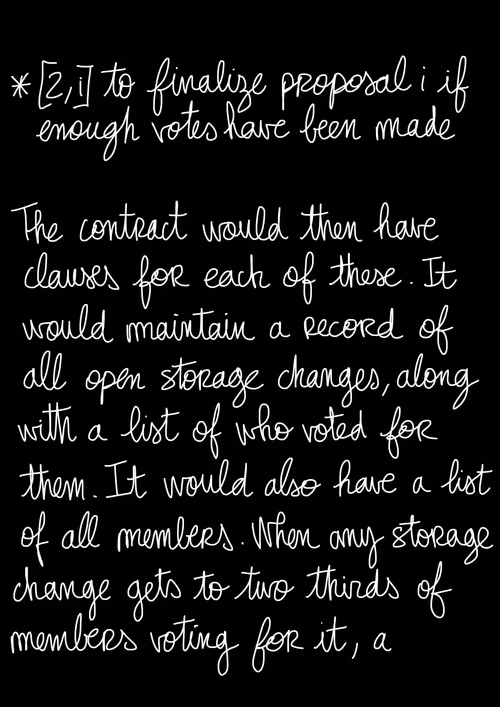 * [2,i] to finalize proposal i if
enough votes have been made
The contract would then have
clauses for each of these. It
would maintain a record of
all open storage changes, along
with a list of who voted for
them. It would also have a list
of all members. When any storage
change gets to two thirds of
members voting for it, a